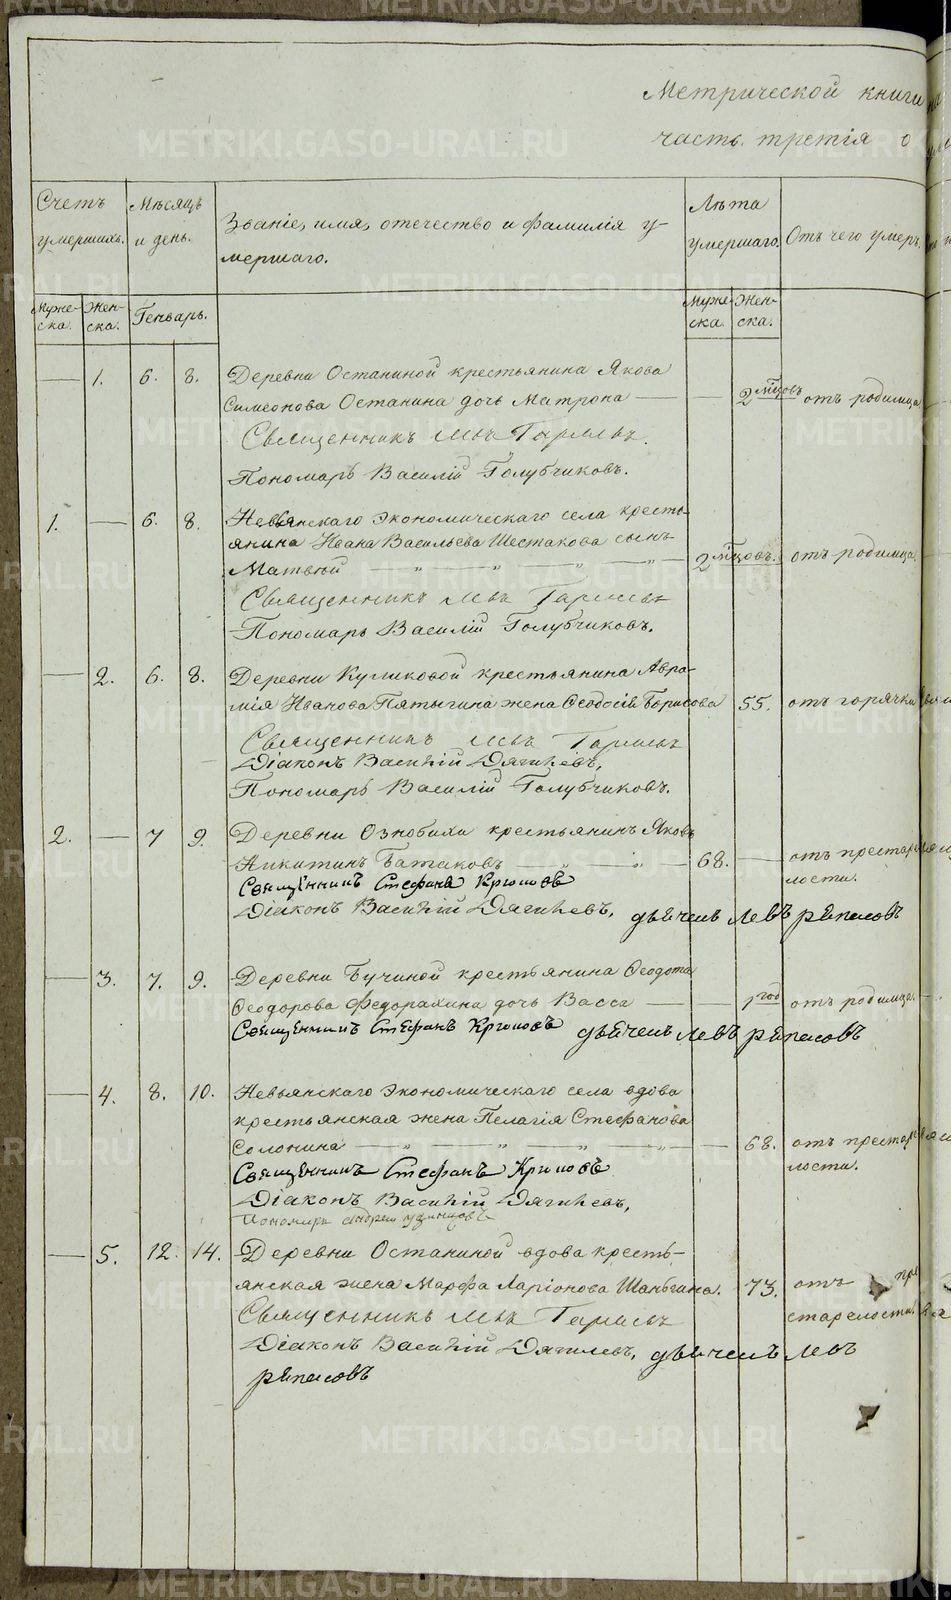 Метрической книги
часть третія о
Счетъ умершихъ.
Мѣсяцъ и день.
Званіе, имя, отечество и фамилія у-
мершаго.
Лѣта умершаго.
Отъ чего умеръ.
Муже-
ска.
Жен-
ска.
Генварь.
Муже-
ска.
Жен-
ска.
— 1. 6. 8. Деревни Останиной крестьянина Якова
Симеонова Останина дочь Матрона — — 2 мцовъ отъ родимца
Священникъ Левъ
Пономарь Василій Голубчиковъ.
1. — 6. 8. Невьянскаго экономическаго села кресть-
янина Ивана Васильева Шестакова сынъ
Матвѣй — „ — „ — „ — „ — 2 мцовъ. отъ родимца
Священникъ Левъ
Пономарь Василій Голубчиковъ.
— 2. 6. 8. Деревни Куликовой крестьянина Авра-
мія Иванова Пятыгина жена Ѳеодосія Борисова 55. отъ горячки
Священникъ Левъ
Діаконъ Василій Дягилевъ,
Пономарь Василій Голубчиковъ.
2. — 7 9. Деревни Ознобихи крестьянинъ Яковъ
Никитинъ Батаковъ „ — „ — 68. — отъ престарѣ
лости.
Священникъ Стефанъ
Діаконъ Василій Дягилевъ, дьячекъ Левъ
— 3. 7. 9. Деревни Бучиной крестьянина Ѳеодота
Ѳеодорова Федорахина дочь Васса — — 1 год отъ родимца.
Священникъ Стефанъ дьячекъ Левъ
— 4. 8. 10. Невьянскаго экономическаго села вдова
крестьянская жена Пелагія Стефанова
Солонина — „ — „ — „ — „ — 68. отъ престарѣ
лости.
Священникъ Стефанъ
Діаконъ Василій Дягилевъ,
Пономарь Андрей
— 5. 12. 14. Деревни Останиной вдова кресть-
янская жена Марфа Ларіонова Шанбгина. 73. отъ пре
старелости
Священникъ Левъ
Діаконъ Василій Дягилевъ, дьячекъ Левъ
METRIKI.GASO-URAL.RU